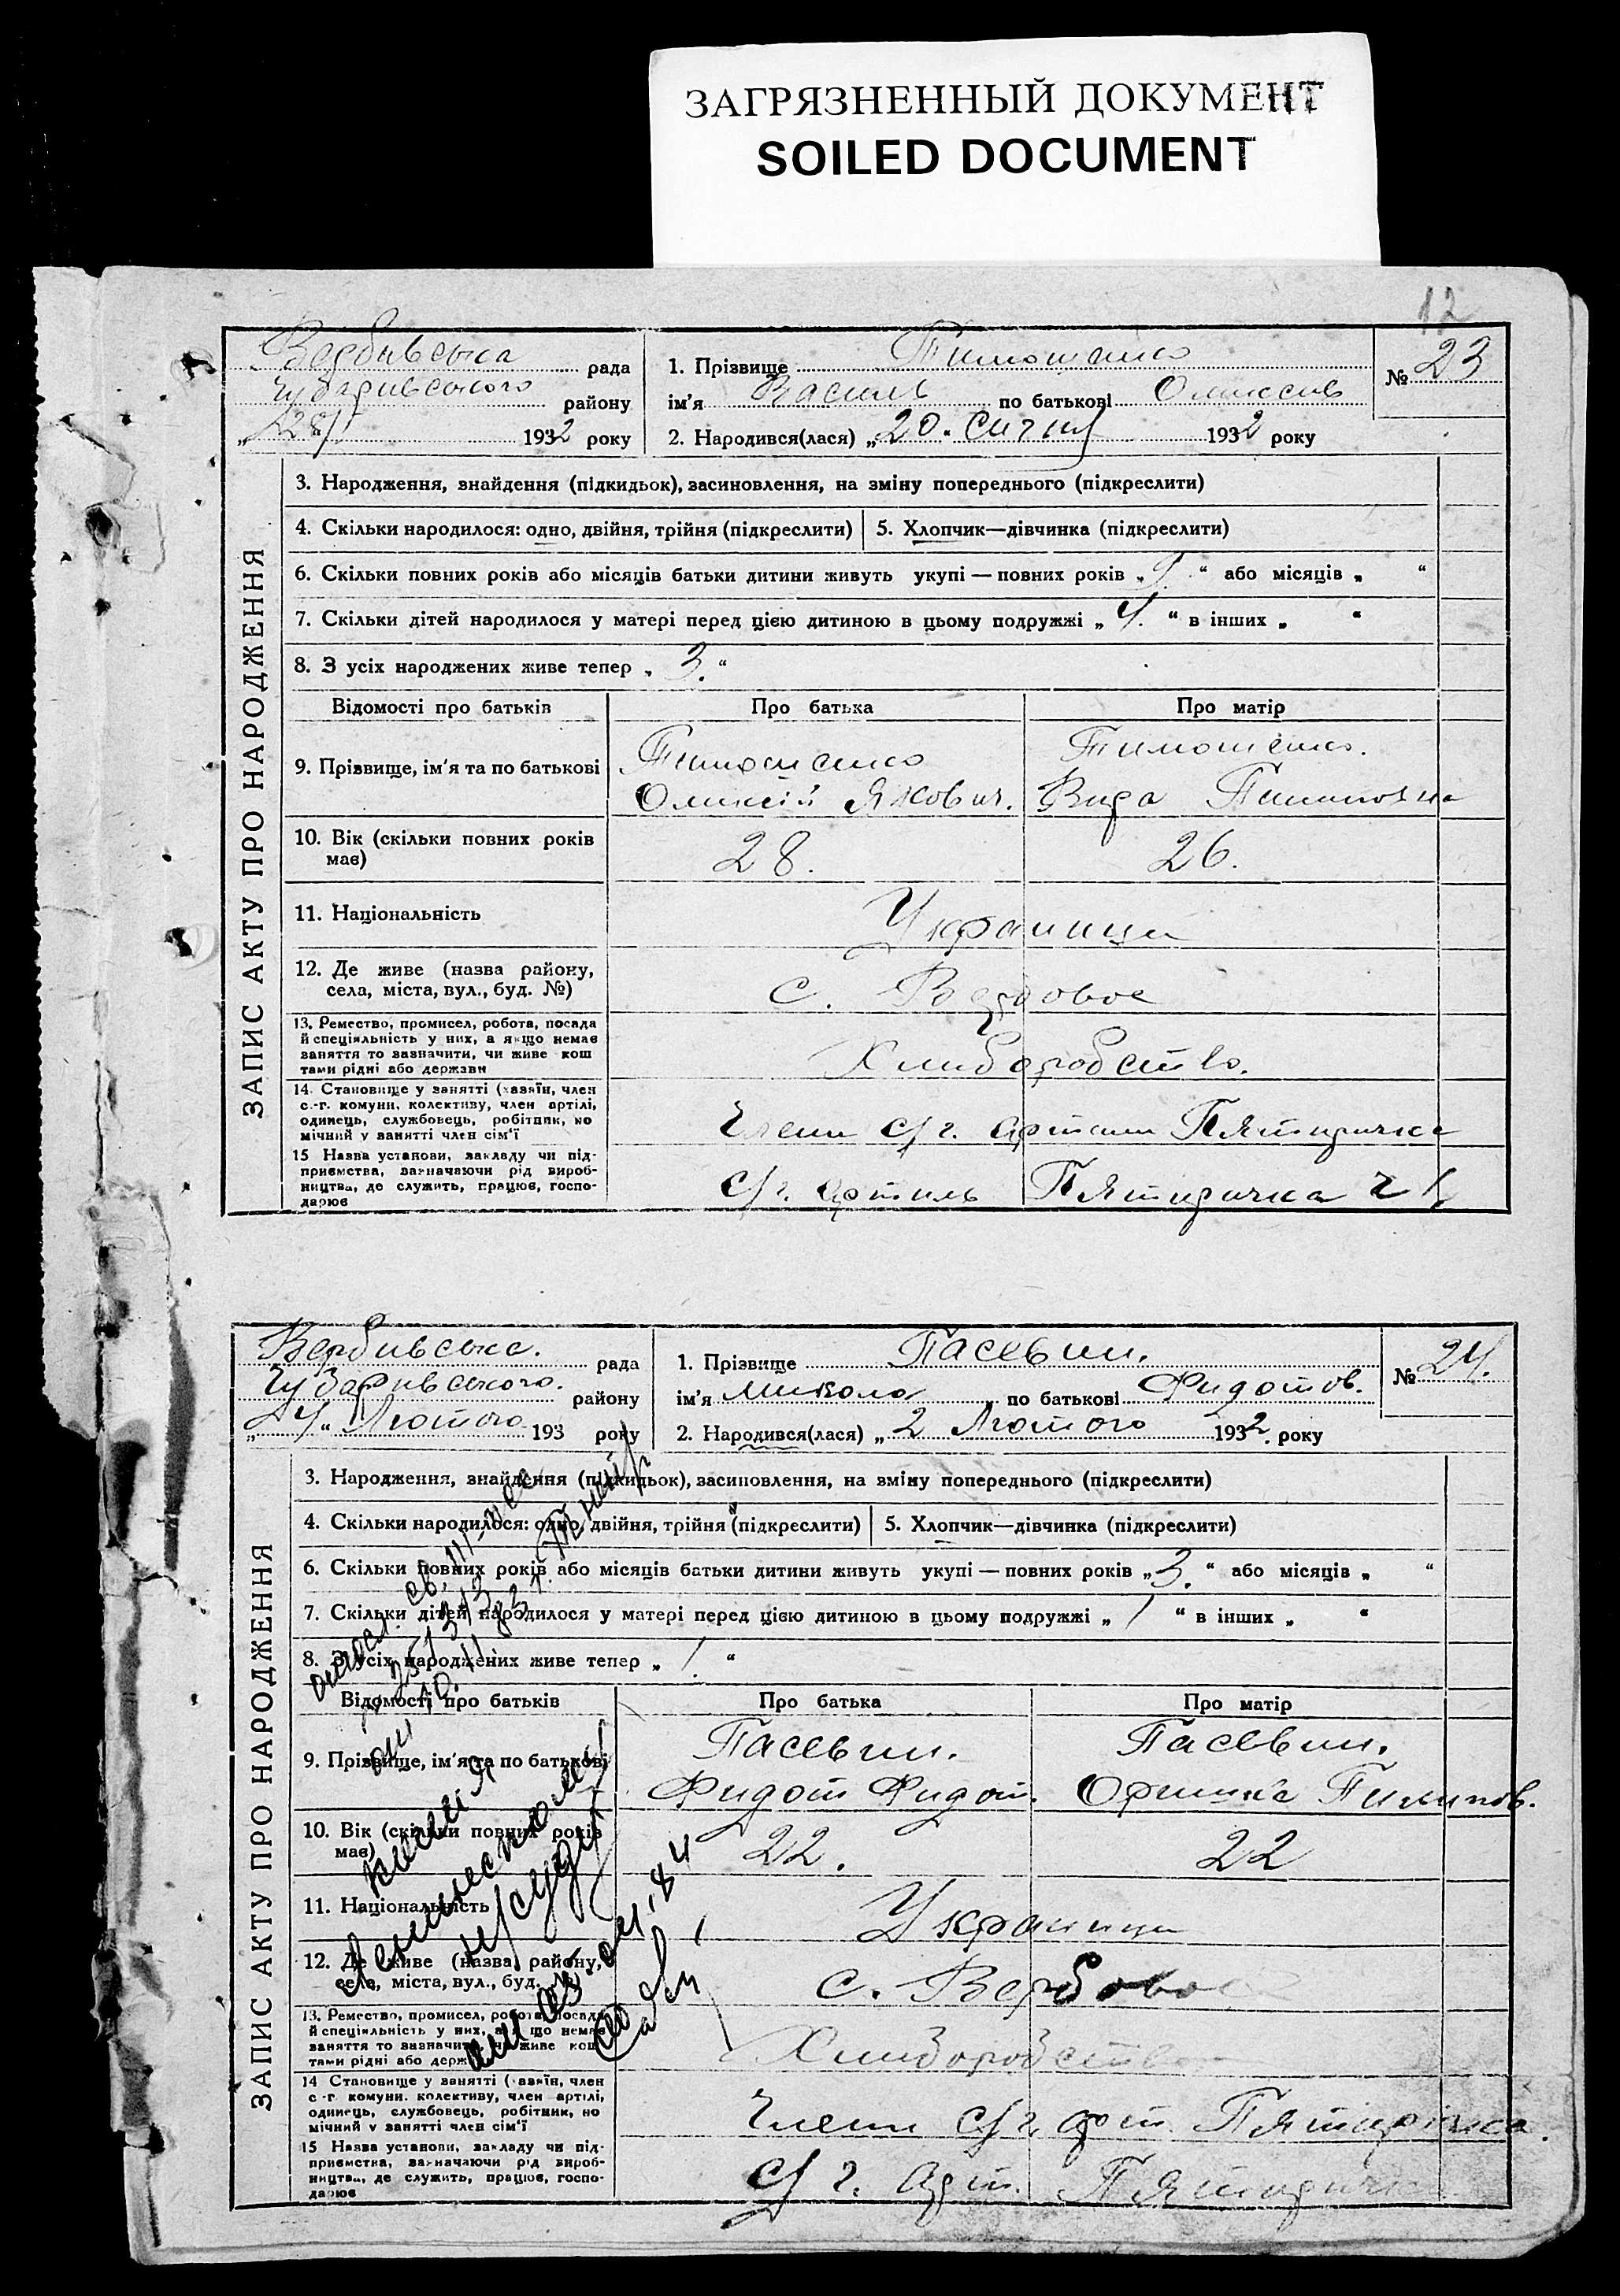 ЗАГРЯЗНЕННЫЙ ДОКУМЕНТ
SOILED DOCUMENT
12
Вербивська рада
Чубаривського району
„28/I 1932 року
1. Прізвище Тимошенко
ім'я Василь по батькові Олексіїв
2. Народився(лася) „20" Січня 1932 року
№ 23
ЗАПИС АКТУ ПРО НАРОДЖЕННЯ
3. Народження, знайдення (підкидьок), засиновлення, на зміну попереднього (підкреслити)
4. Скільки народилося: одно, двійня, трійня (підкреслити) 5. Хлопчик—дівчинка (підкреслити)
6. Скільки повних років або місяців батьки дитини живуть укупі — повних років „9" або місяців „ "
7. Скільки дітей народилося у матері перед цією дитиною в цьому подружжі „ 4. " в інших „ "
8. З усіх народжених живе тепер „ 3. "
Відомості про батьків Про батька Про матір
9. Прізвище, ім'я та по батькові
Тимошенко Тимошенко.
Олексій Якович. Вира
10. Вік (скільки повних років
має)
28. 26.
11. Національність
Украинци
12. Де живе (назва району,
села, міста, вул., буд. №)
с. Вербовое
13. Ремество, промисел, робота, посада
й спеціяльність у них, а якщо немає
заняття то зазначити, чи живе кош
тами рідні або держави
Хлиборобство.
14. Становище у занятті (хазяїн, член
с.-г. комуни, колективу, член артілі,
одинець, службовець, робітник, по
мічний у занятті член сім'ї
Члени с/г. артили Пятиричка
15 Назва установи, закладу чи під-
приємства, зазначаючи рід вироб-
ництва, де служить, працює, госпо-
дарює
с/г. артиль Пятиричка
Вербивська. рада
Чубаривського. району
„4" Лютого 193 року
1. Прізвище Пасевин.
ім'я Микола по батькові Фидотов.
2. Народився(лася) „ 2 Лютого 1932. року
№ 24.
ЗАПИС АКТУ ПРО НАРОДЖЕННЯ
3. Народження, знайдення (підкидьок), засиновлення, на зміну попереднього (підкреслити)
4. Скільки народилося: одно, двійня, трійня (підкреслити) 5. Хлопчик—дівчинка (підкреслити)
6. Скільки повних років або місяців батьки дитини живуть укупі — повних років „3. " або місяців „ "
7. Скільки дітей народилося у матері перед цією дитиною в цьому подружжі „ 1 " в інших „ "
8. З усіх народжених живе тепер „ 1. "
Відомості про батьків Про батька Про матір
9. Прізвище, ім'я та по батькові
Пасевин. Пасевин.
Фидот Фидот. Оришка Пилипов.
10. Вік (скільки повних років
має)
22. 22
11. Національність
Украинци
12. Де живе (назва району,
села, міста, вул., буд. №)
с. Вербовое
13. Ремество, промисел, робота, посада
й спеціяльність у них, а якщо немає
заняття то зазначити, чи живе кош
тами рідні або держави
Хлиборобство
14 Становище у занятті (хазяїн, член
с-г комуни, колективу, член артілі,
одинець, службовець, робітник, по
мічний у занятті член сім'ї
Члени с/г. арт. Пятирічка.
15 Назва установи, закладу чи під-
приємства, зазначаючи рід вироб-
ництва, де служить, працює, госпо-
дарює
с/г. Арт. Пятиричка
копия
Ленинскому
н/суду